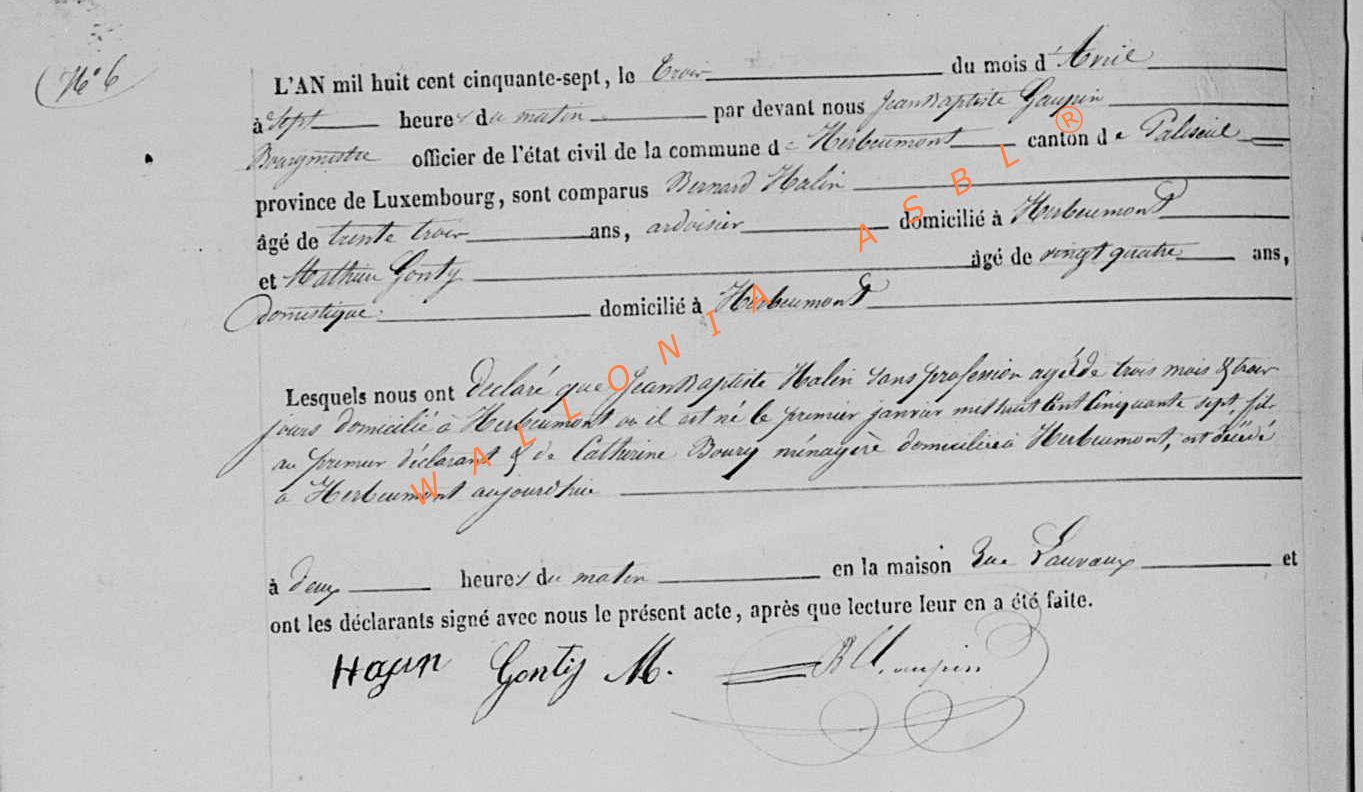 N° 6
L'AN mil huit cent cinquante-sept, le trois du mois d'Avril
à sept heures du matin par devant nous Jean Baptiste Gaupin
Bourgmestre officier de l'état civil de la commune de Herbeumont canton de Paliseul
province de Luxembourg, sont comparus Bernard Halin
âgé de trente trois ans, ardoisier domicilié à Herbeumont
et Mathieu Gontÿ âgé de vingt quatre ans,
domestique domicilié à Herbeumont
Lesquels nous ont déclaré que Jean Baptiste Halin sans profession agé de trois mois & trois
jours domicilié à Herbeumont où il est né le premier janvier mil huit Cent Cinquante sept, fils
au premier déclarant & de Catherine Boury ménagère domiciliée à Herbeumont, est décédé
à Herbeumont aujourdhui
à deux heures du matin en la maison Rue Lauvaux et
ont les déclarants signé avec nous le présent acte, après que lecture leur en a été faite.
Gontÿ M.
WALLONIA ASBL ®